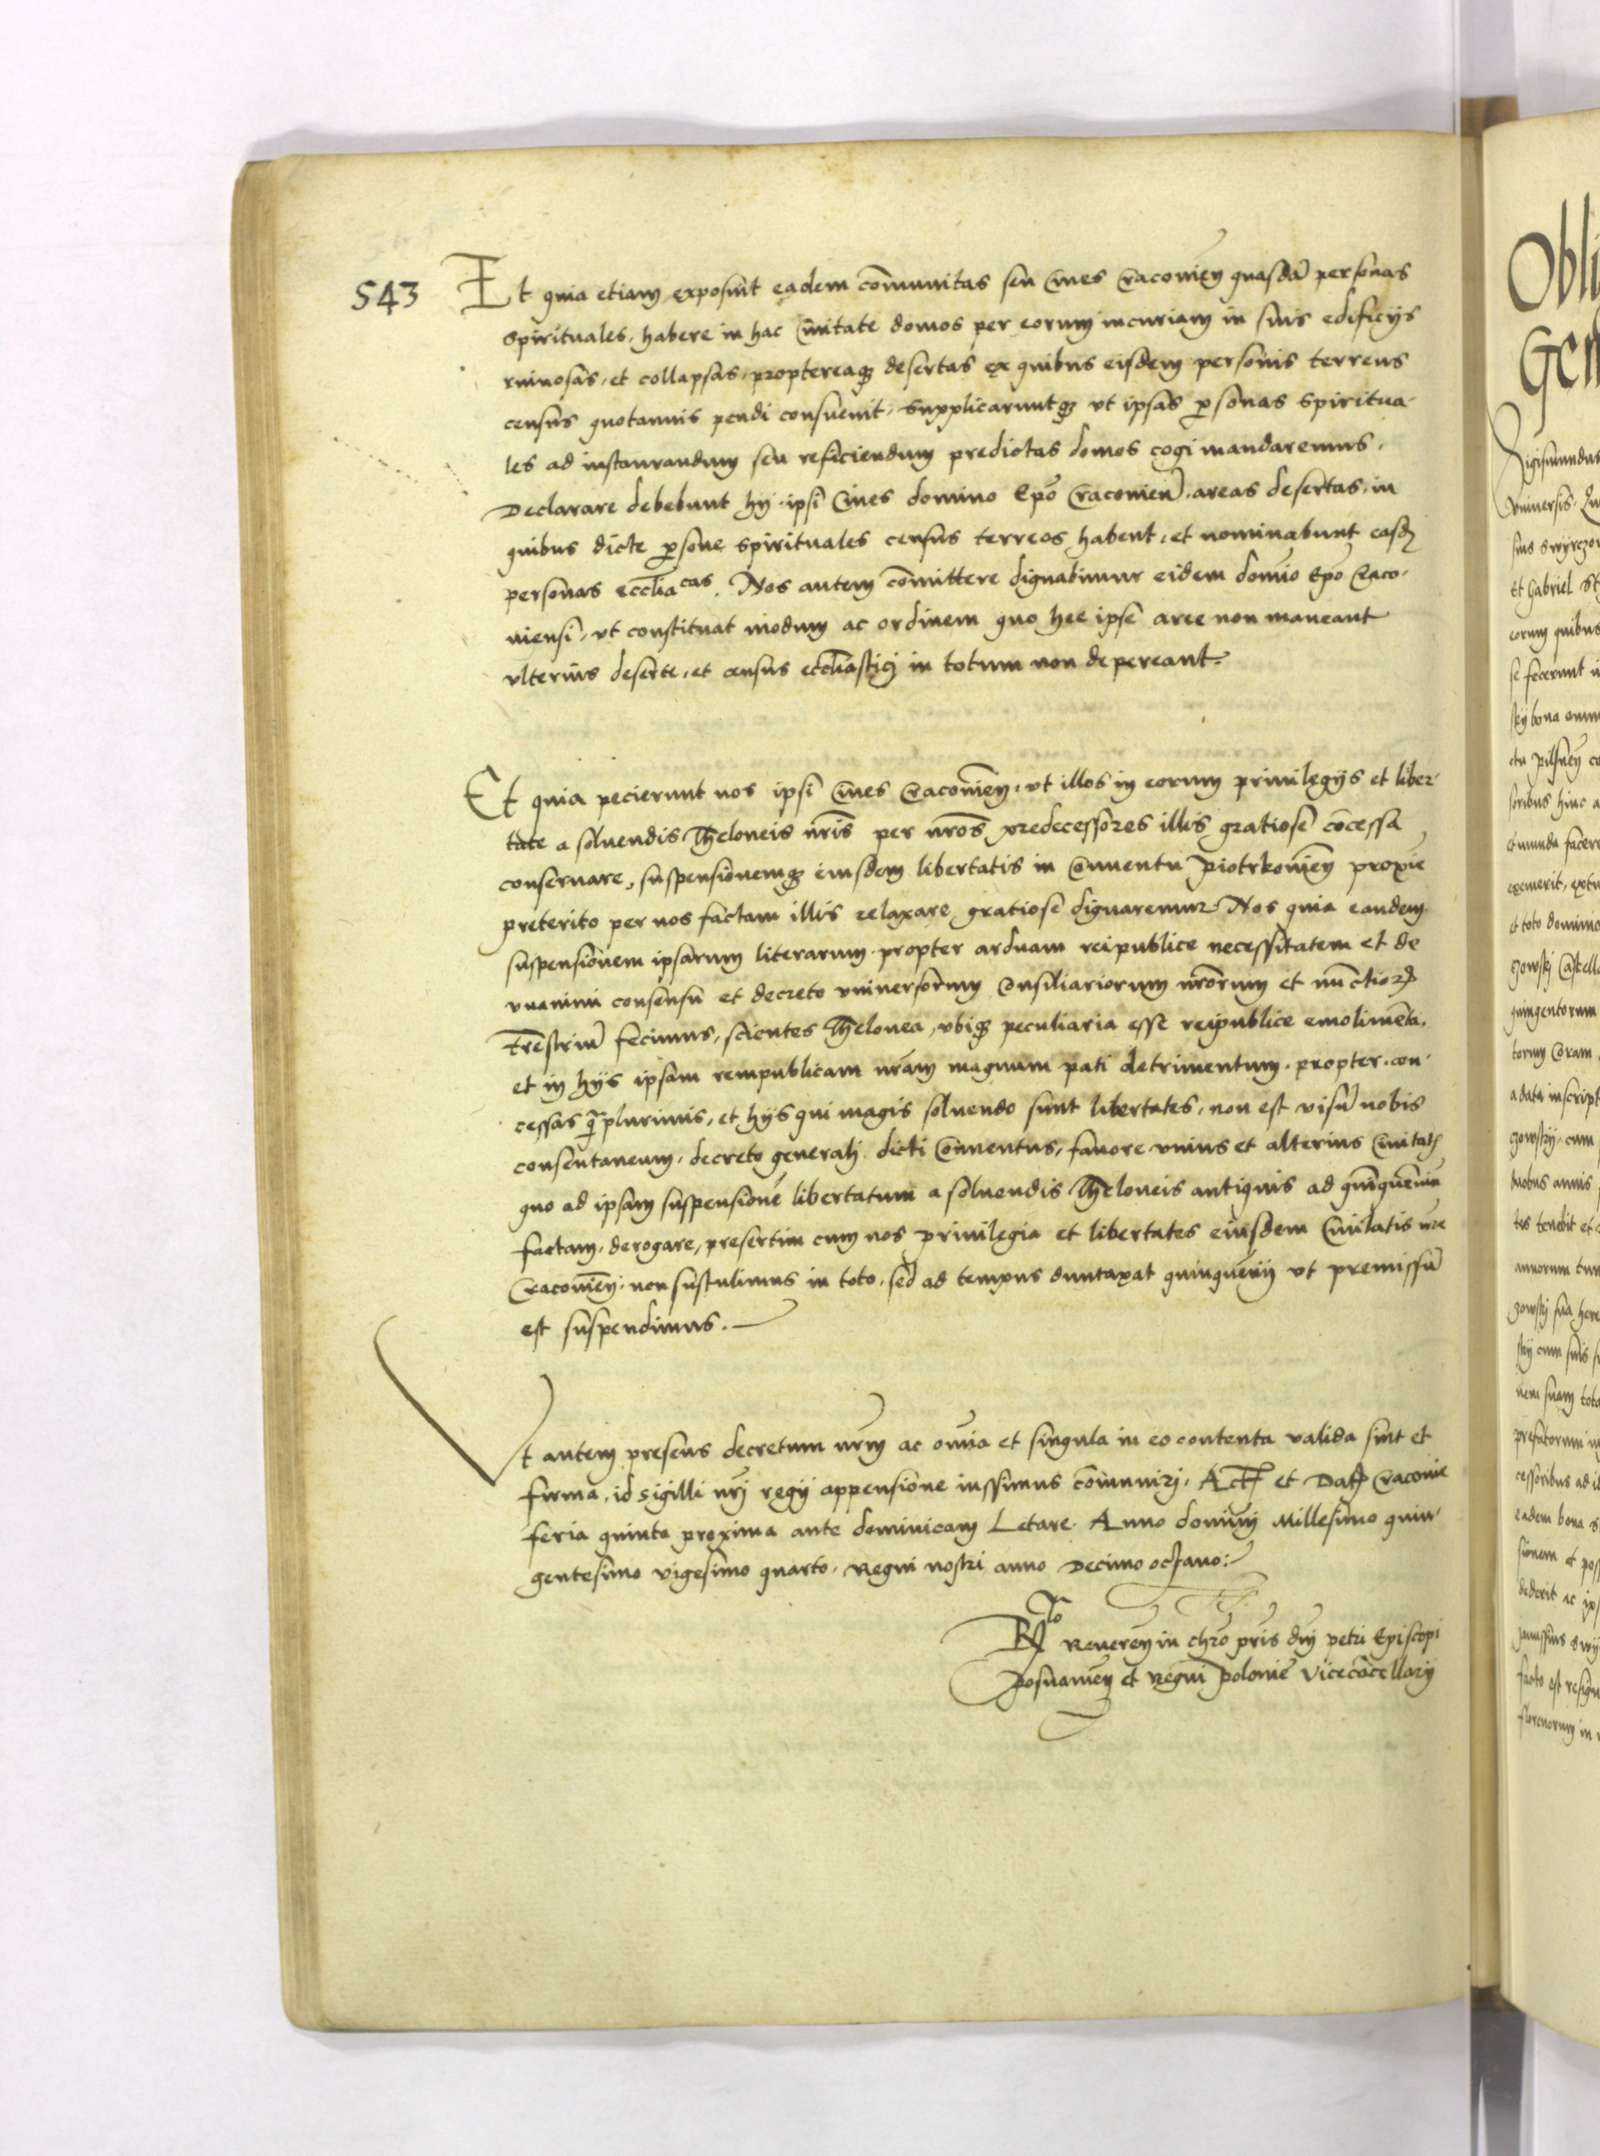 543
Et quia etiam exposuit eadem com̄unitas seu Ciues Cracouien̄ quasdā personas
spirituales, habere in hac Ciuitate domos per eorum incuriam in suis edificijs
ruinosas, et collapsas, proptereaqȝ desertas ex quibus eisdem personis terreus
census quotannis pendi consueuit, supplicaruntqȝ vt ipsas p̱sonas spiritua-
les ad instaurandum seu reficiendum predictas domos cogi mandaremus,
Declarare debebunt hij ipsi Ciues domino Ep̄o Cracouien̄, areas desertas, in
quibus dicte p̱sone spirituales census terreos habent, et nominabunt easdē
personas eccl̄iacas. Nos autem com̄ittere dignabimur eidem domīo Ep̄o Craco-
uiensi, vt constituat modum ac ordinem quo hee ipse aree non maneant
vlterius deserte, et census eccl̄iastici in totum non depereant.
Et quia pecierunt nos ipsi Ciues Cracouien̄, vt illos in eorum priuilegijs et liber-
tate a soluendis Theloneis n̄ris per n̄ros predecessores illis gratiose cōcessa
conseruare, suspensionemqȝ eiusdem libertatis in Conuentu Piotrkouien̄ proxie
preterito per nos factam illis relaxare gratiose dignaremur. Nos quia eandem
suspensionem ipsarum literarum propter arduam reipublice necessitatem et de
vnanimi consensu et decreto vniuersorum Consiliariorum n̄rorum et nūctiorꝫ
Tr̄estriū fecimus, scientes Thelonea, vbiqȝ peculiaria esse reipublice emolimēta,
et in hijs ipsam rempublicam n̄ram magnum pati detrimentum, propter con-
cessas q̄plurimis, et hijs qui magis soluendo sunt libertates, non est visū nobis
consentaneum, decreto generali dicti Conuentus, fauore vnius et alterius Ciuitatꝭ
quo ad ipsam suspensionē libertatum a soluendis Theloneis antiquis ad quīquēniū
factam, derogare, presertim cum nos priuilegia et libertates eiusdem Ciuitatis n̄re
Cracouien̄, non sustulimus in toto, sed ad tempus duntaxat quinquēnij vt premissū
est suspendimus.
Vt autem presens decretum n̄rm ac om̄ia et singula in eo contenta valida sint et
firma, id sigilli n̄ri regij appensione iussimus com̄uniri, Actꝭ et Datꝭ Cracouie
feria quinta proxima ante dominicam Letare. Anno domini Millesimo quin-
gentesimo vigesimo quarto, Regni nostri anno Decimo octauo:
Rlo Reueren̄ in chr̄o pr̄is dn̄i Petri Episcopi
Posnanien̄ et Regni Polonie Vicecācellarij
Obli
Gen
Sigismundus
vniuersis
Et Gabriel
eorum quibus
se fecerunt
soribus hinc
exemerit
et toto dominio
quingentorum
torum Coram
a data inscript
duobus annis
tes tenebit et
annorum
nem suam
cessoribus ad
eadem bona
sionem et poss
dederit ac
facto est resign
florenorum in